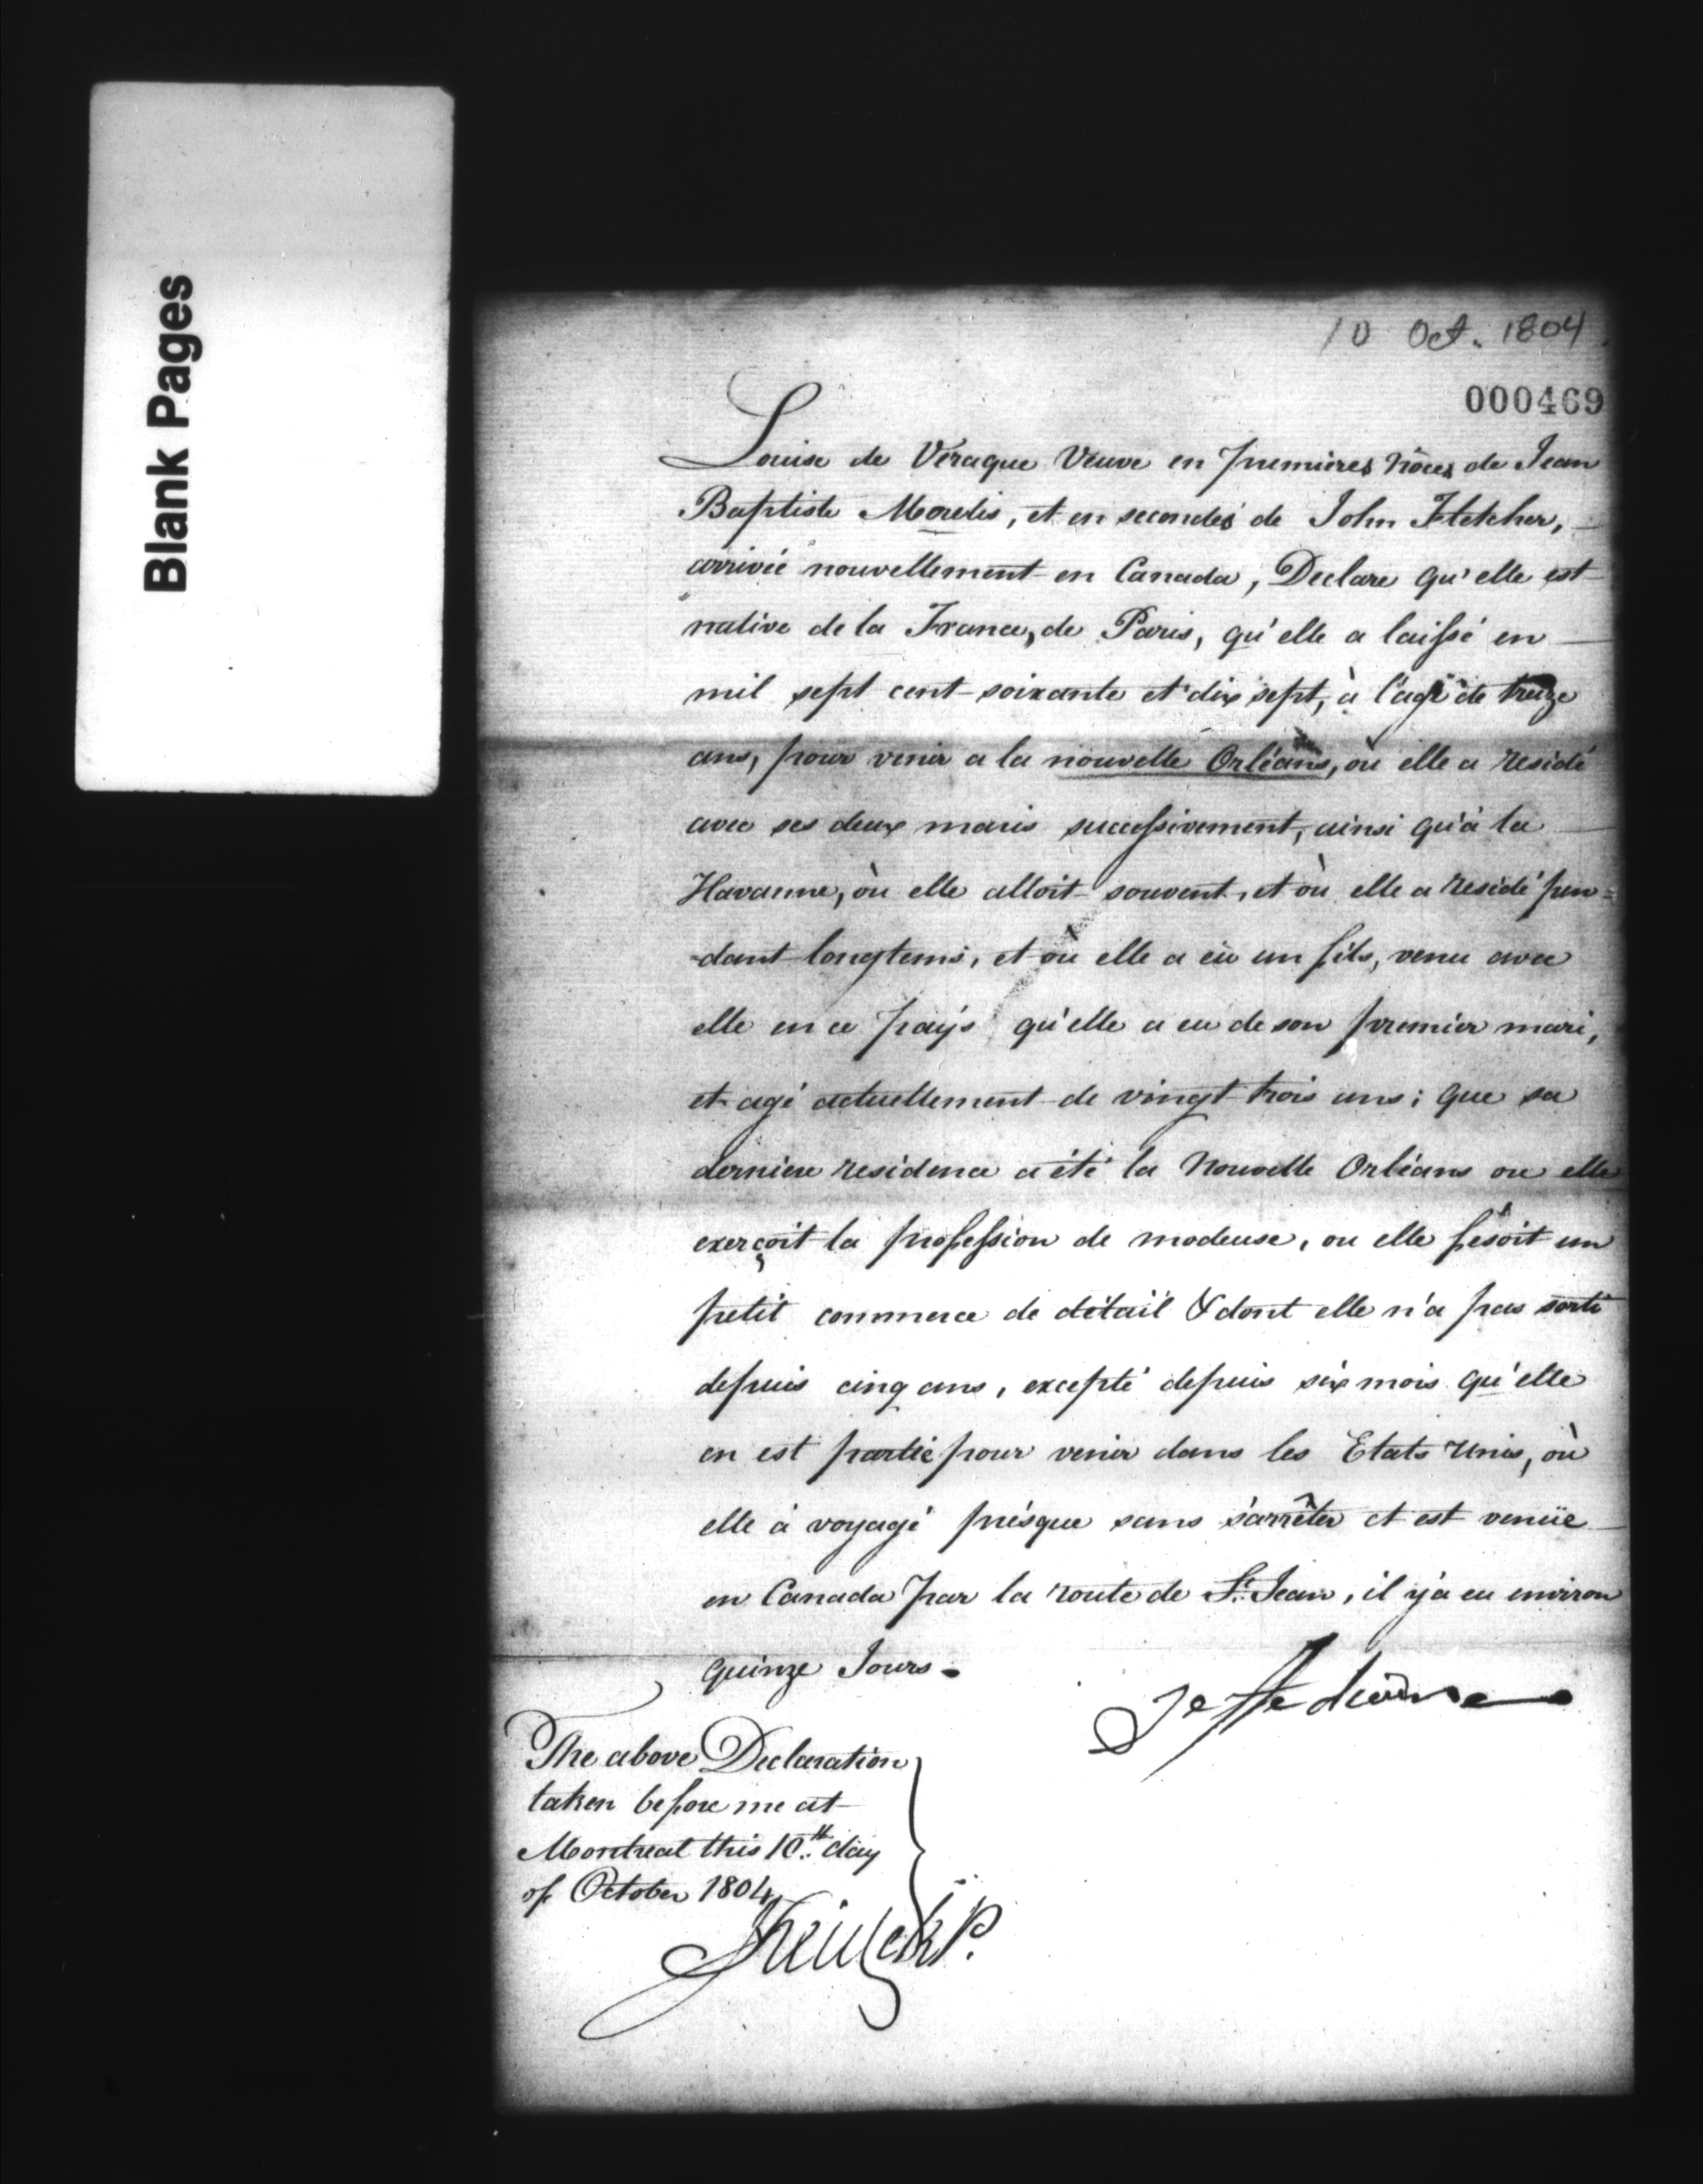 Blank Pages
10 Oct. 1804
000469
Louise de Veraque Veuve en premieres nôces de Jean
Baptiste Morelis, et en secondes de John Fletcher,
arrivée nouvellement en Canada, Declare qu'elle est
native de la France, de Paris, qu'elle a laissé en
mil sept cent soixante et dix sept, à l'age de treize
ans, pour venir a la nouvelle Orléans, où elle a residé
avec ses deux maris successivement, ainsi qu'à la
Havanne, où elle alloit souvent, et où elle a residé pen=
-dant longtems, et où elle a eù un fils, venu avec
elle en ce pays qu'elle a eu de son premier mari,
et agé actuellement de vingt trois ans; que sa
derniere residence a été la Nouvelle Orléans ou elle
exerçoit la profession de modeuse, ou elle fesoit un
petit commerce de détail & dont elle n'a pas sorti
depuis cinq ans, excepté depuis six mois qu'elle
en est partie pour venir dans les Etats Unis, où
elle à voyagé présque sans s'arrêter et est venüe
en Canada par la route de St. Jean, il y'a eu environ
quinze Jours.
The above Declaration
taken before me at
Montreal this 10th day
of October 1804